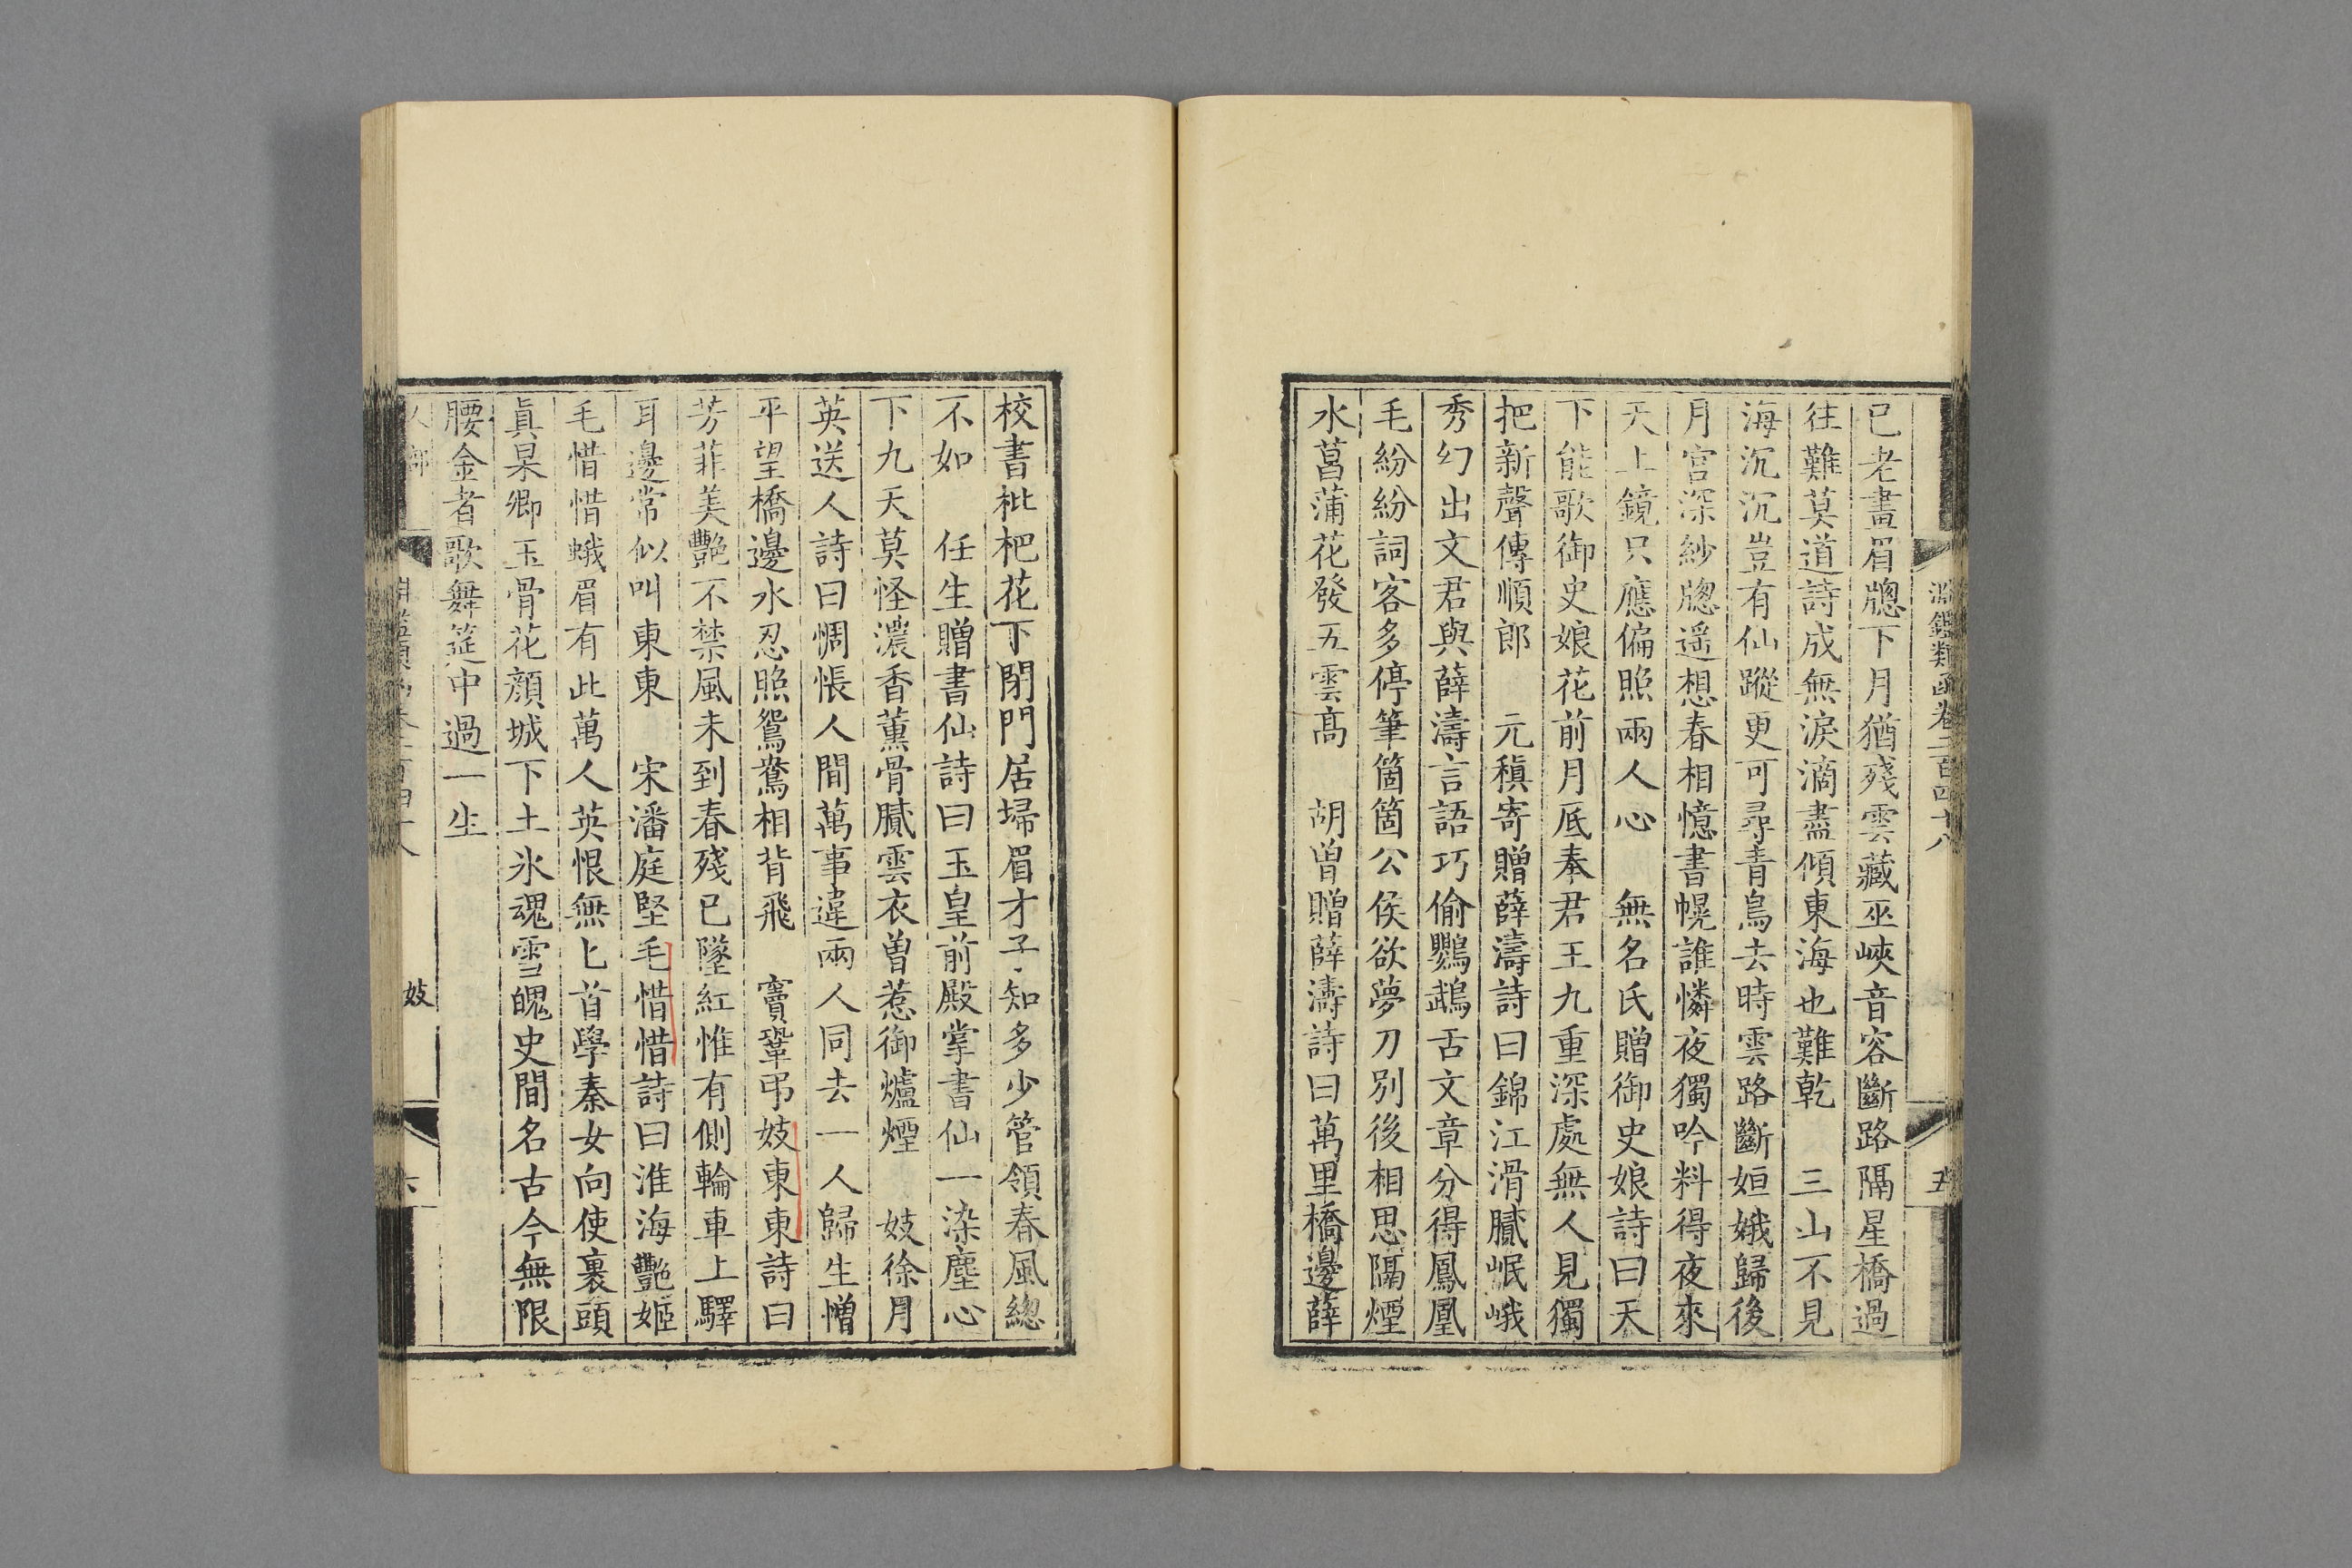 淵鑑類函卷二百四十八
五
已老畫眉牕下月猶殘雲藏巫峽音容斷路隔星橋過
往難莫道詩成無淚滴盡傾東海也難乾　三山不見
海沉沉豈有仙蹤更可尋青鳥去時雲路斷姮娥歸後
月宮深紗牕遥想春相憶書幌誰憐夜獨吟料得夜來
天上鏡只應偏照兩人心　無名氏贈御史娘詩曰天
下能歌御史娘花前月底奉君王九重深處無人見獨
把新聲傳順郎　元稹寄贈薛濤詩曰錦江滑膩岷峨
秀幻出文君與薛濤言語巧偷鸚鵡舌文章分得鳳凰
毛紛紛詞客多停筆箇箇公侯欲夢刀別後相思隔煙
水菖蒲花發五雲髙　胡曽贈薛濤詩曰萬里橋邊薛
校書枇杷花下閉門居埽眉才子知多少管領春風總
不如　任生贈書仙詩曰玉皇前殿掌書仙一染塵心
下九天莫怪濃香薰骨膩雲衣曽惹御爐煙　妓徐月
英送人詩曰惆悵人間萬事違兩人同去一人歸生憎
平望橋邊水忍照鴛鴦相背飛　竇鞏弔妓東東詩曰
芳菲美艷不禁風未到春殘已墜紅惟有側輪車上驛
耳邊常似叫東東　宋潘庭堅毛惜惜詩曰淮海艷姬
毛惜惜蛾眉有此萬人英恨無匕首學秦女向使裹頭
真杲卿玉骨花顔城下土氷魂雪魄史間名古今無限
腰金者歌舞筵中過一生
妓
六